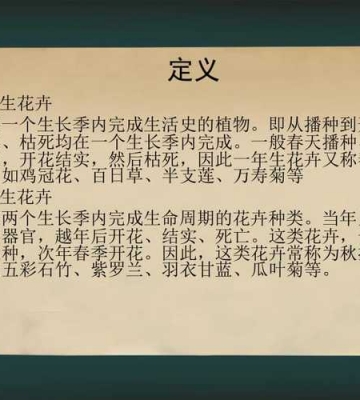 定义
生花卉
一个生长季内完成生活史的植物。即从播种到
、枯死均在一个生长季内完成。一般春天播种
，开花结实，然后枯死，因此一年生花卉又称
如鸡冠花、百日草、半支莲、万寿菊等
生花卉
两个生长季内完成生命周期的花卉种类。当年
器官，越年后开花、结实、死亡。这类花卉，
种，次年春季开花。因此，这类花卉常称为秋
五彩石竹、紫罗兰、羽衣甘蓝、瓜叶菊等。